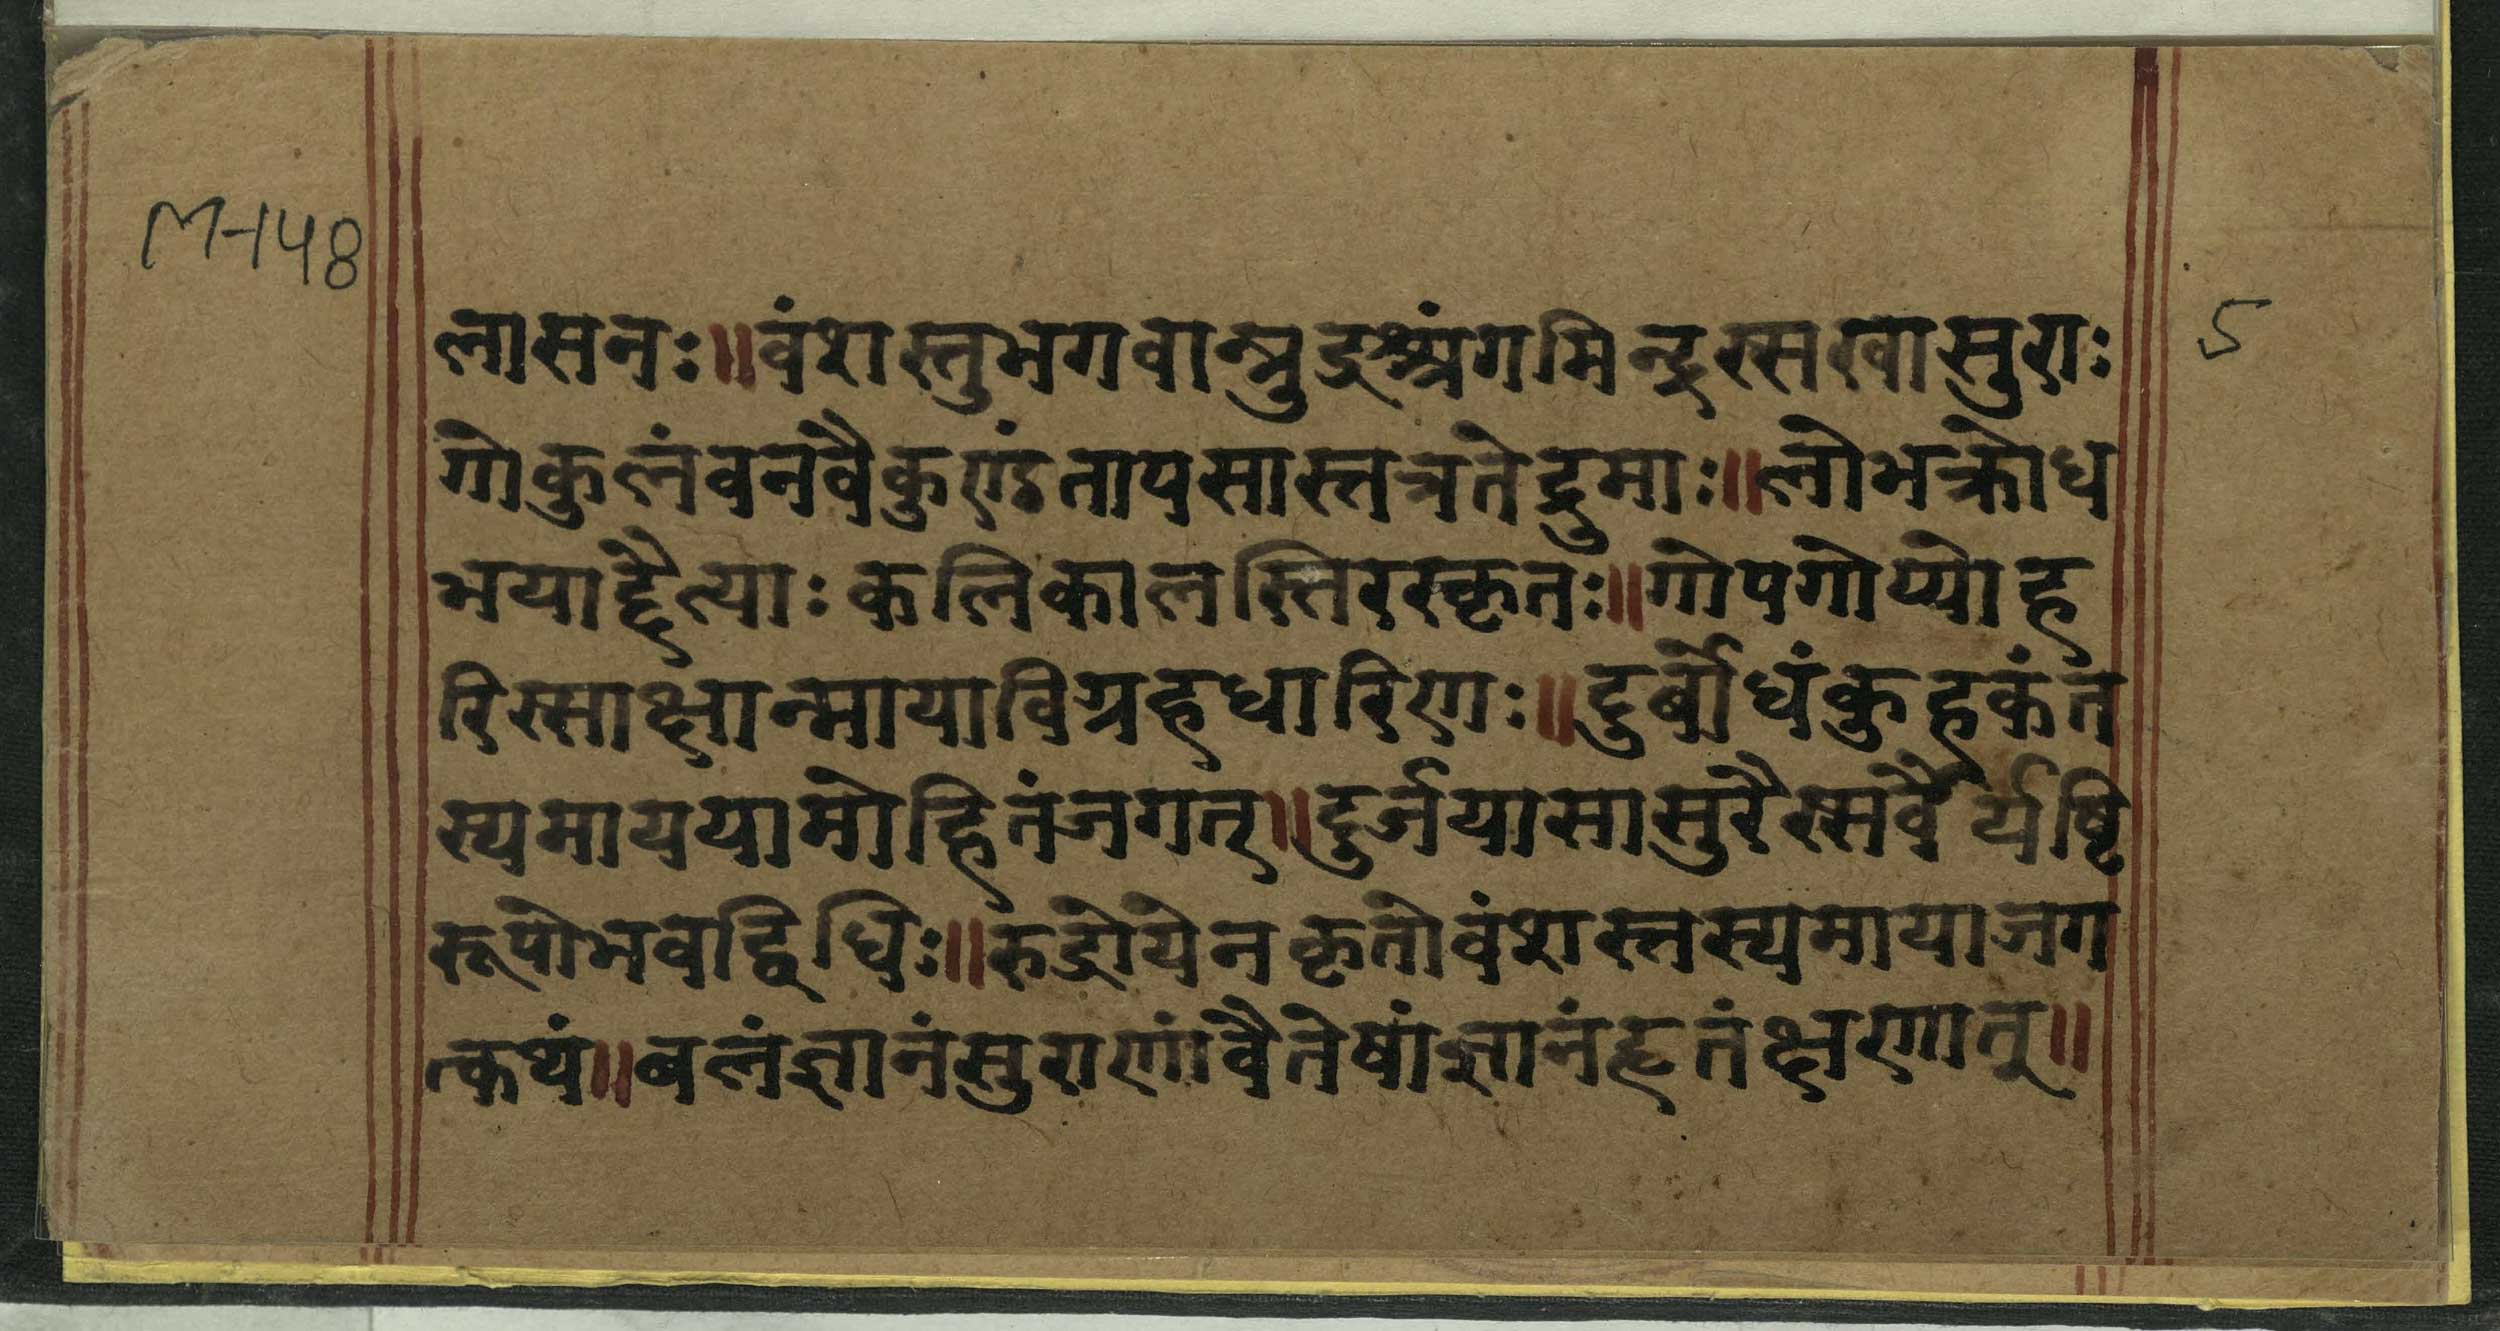 M-148
5
लासनः॥वंशस्तुभगवान्रुद्रश्शृंगमिन्द्रस्सखासुराः
गोकुलंवनवैकुण्ठंतापसास्तत्रतेद्रुमाः॥लोभक्रोध
भयाद्दैत्याःकलिकालस्तिरस्कृतः॥गोपगोप्योह
रिस्साक्षान्मायाविग्रहधारिणः॥दुर्बोधंकुहकंत
स्यमाययामोहितंजगत्॥दुर्जयासासुरैस्सर्वैर्यष्टि
रूपोभवद्विधिः॥रुद्रोयेनकृतोवंशस्तस्यमायाजग
त्कथं॥बलंज्ञानंसुराणांवैतेषांज्ञानंहृतंक्षणात्॥